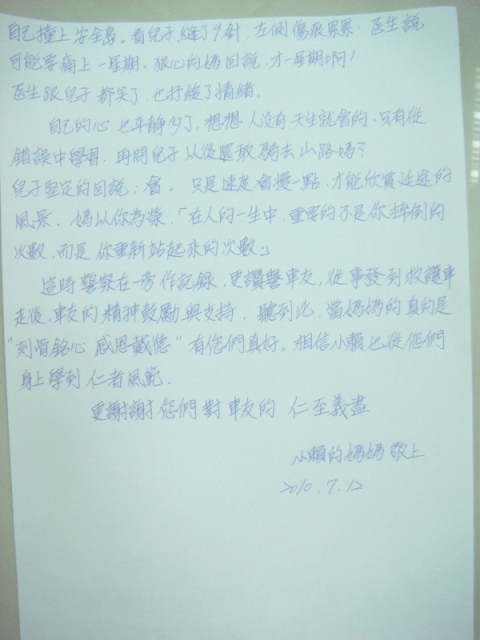 自己撞上安全島。看兒子縫了9針，左側傷痕累累．医生說
可能要痛上一星期．狠心的媽回說．才一星期啊！
医生跟兒子都笑了．也抒緩了情緒．
自己的心也平靜多了．想想人没有天生就會的．只有從
錯誤中學習．再問兒子以後還敢騎去山路嗎？
兒子堅定的回說：會。只是速度會慢一點．才能欣賞延途的
風景．媽以你為榮．「在人的一生中．重要的不是你摔倒的
次數．而是你重新站起來的次數。」
這時警察在一旁作記錄．更讚譽車友．從事發到救護車
走後．車友的精神鼓勵與支持．聽到此．當媽媽的真的是
"刻骨銘心 感恩戴德" 有您們真好。相信小賴也從您們
身上學到仁者風範．
更謝謝您們對車友的 仁至義盡
小賴的媽媽 敬上
2010.7.12